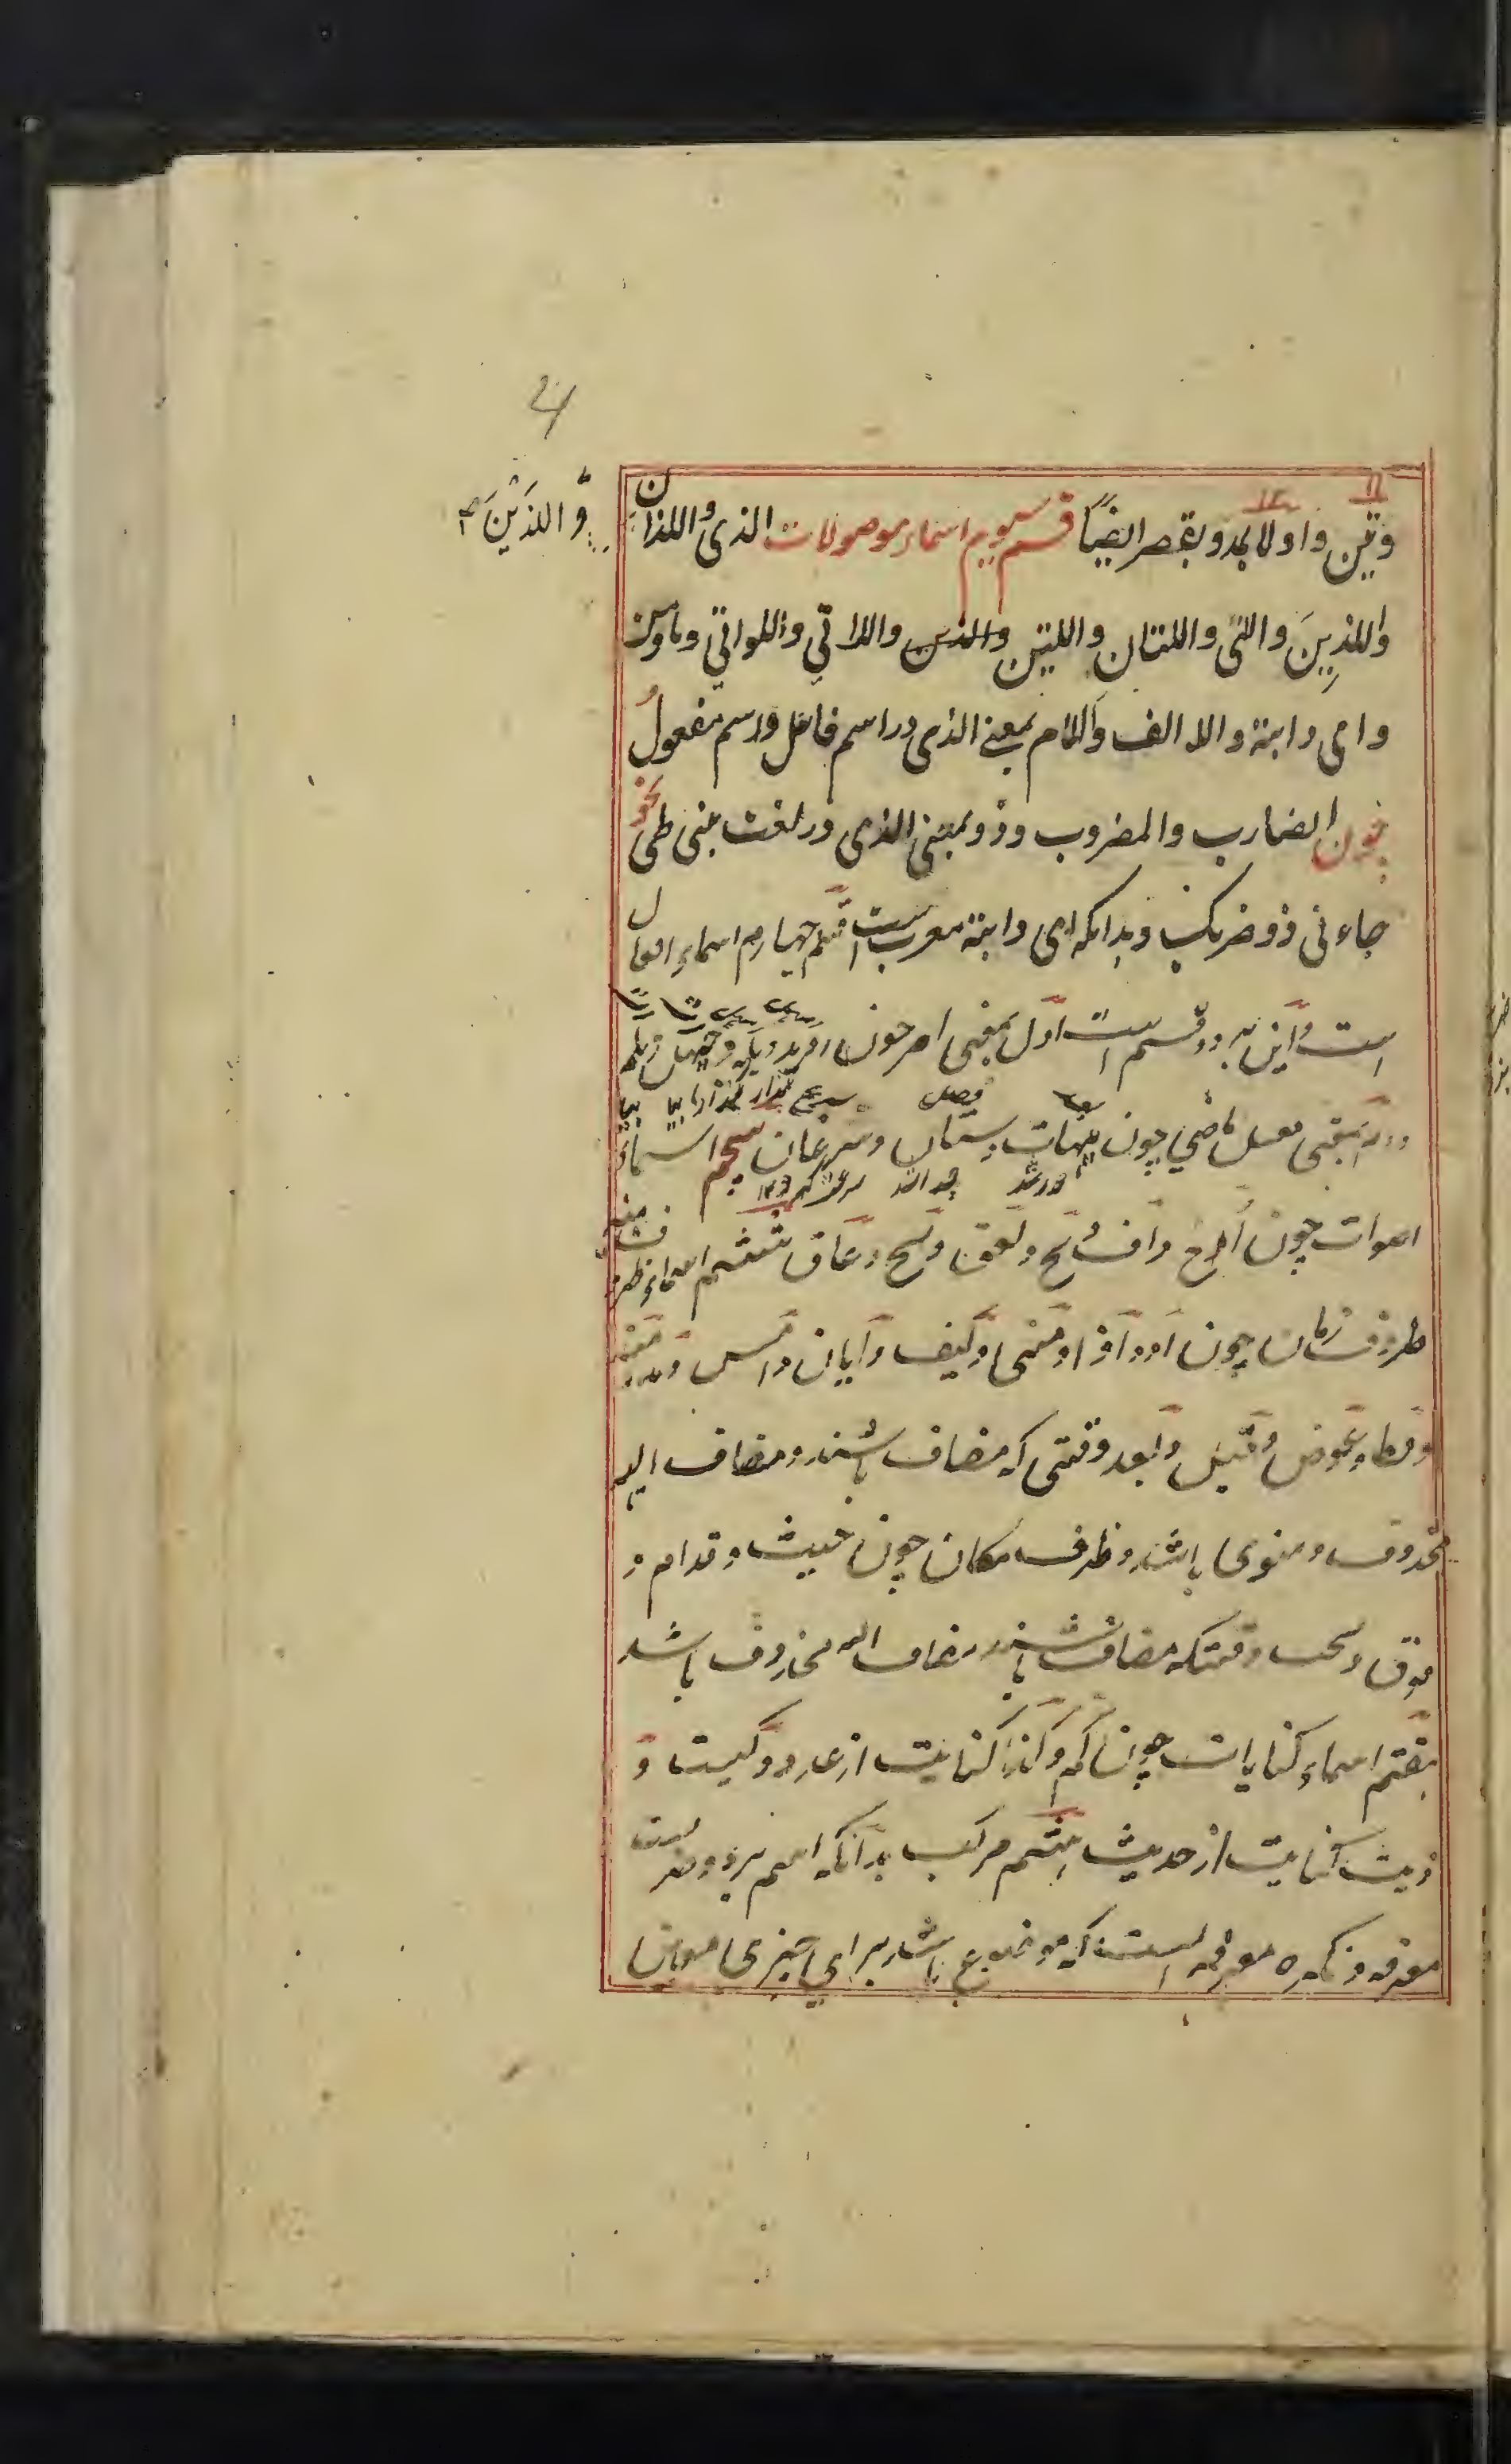 4
وتین واولا بمد وبقصر ایضاً قسم سیوم اسماء موصولات الذی و اللذان
وَّ اللذَیْنَ
واللذِینَ والتی واللتان واللتین والذین واللاتی واللواتی وما ومن
وای وایة والا الف واللام بمعنی الذی در اسم فاعل واسم مفعول
چون الضارب والمضروب وذو بمعنی الذی در لغت بنی طی نحو
جاءنی ذو ضربک وبدانکه ای وایة معرب است قسم چهارم اسماء افعال
است واین بر دو قسم است اوّل بمعنی امر چون
بمعنی فعل ماضی چون هیهات وشتان وسرعان پنجم اسماء
اصوات چون اح اح واف وبخ ونخ وغاق ششم اسماء ظروف
ظروف زمان چون اذ واذا ومتی وکیف وایان وامس ومذ ومنذ
وقط وعوض وقبل وبعد وقتی که مضاف باشند ومضاف الیه
محذوف ومنوی باشد وظرف مکان چون حیث وقدام و
فوق وتحت وقتیکه مضاف باشند ومضاف الیه محذوف باشد
هفتم اسماء کنایات چون کم وکذا کنایت از عدد وکیت و
ذیت کنایت از حدیث هشتم مرکب بدانکه اسم بر دو ضرب است
معرفه ونکره معرفه است که موضوع باشد برای چیزی معین